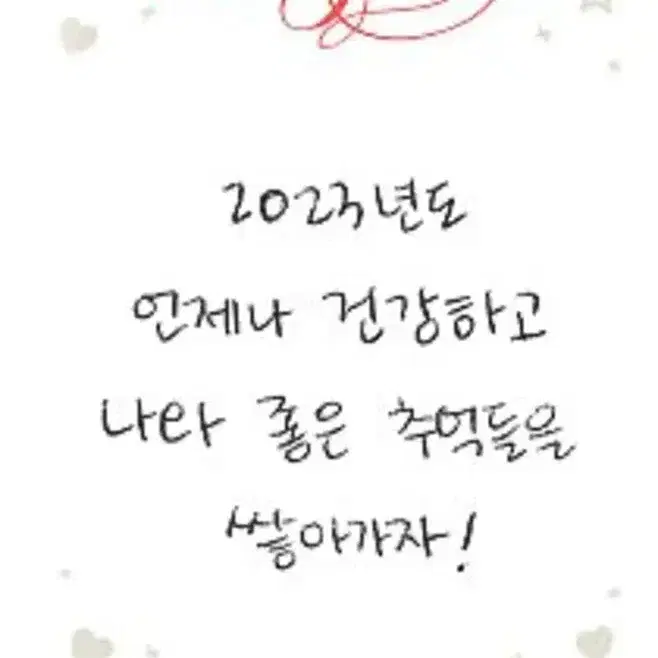 2023년도
언제나 건강하고
나와 좋은 추억들을
쌓아가자!